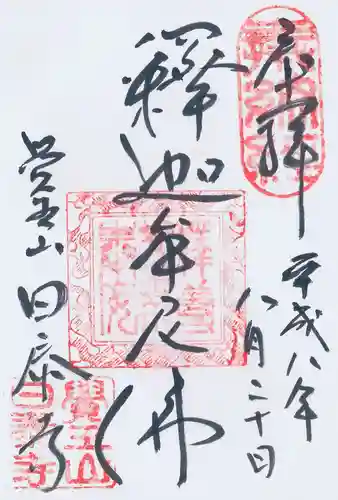 奉拝
平成八年
八月二十日
釋迦牟尼佛
覚王山日泰寺
覺王山
日泰寺